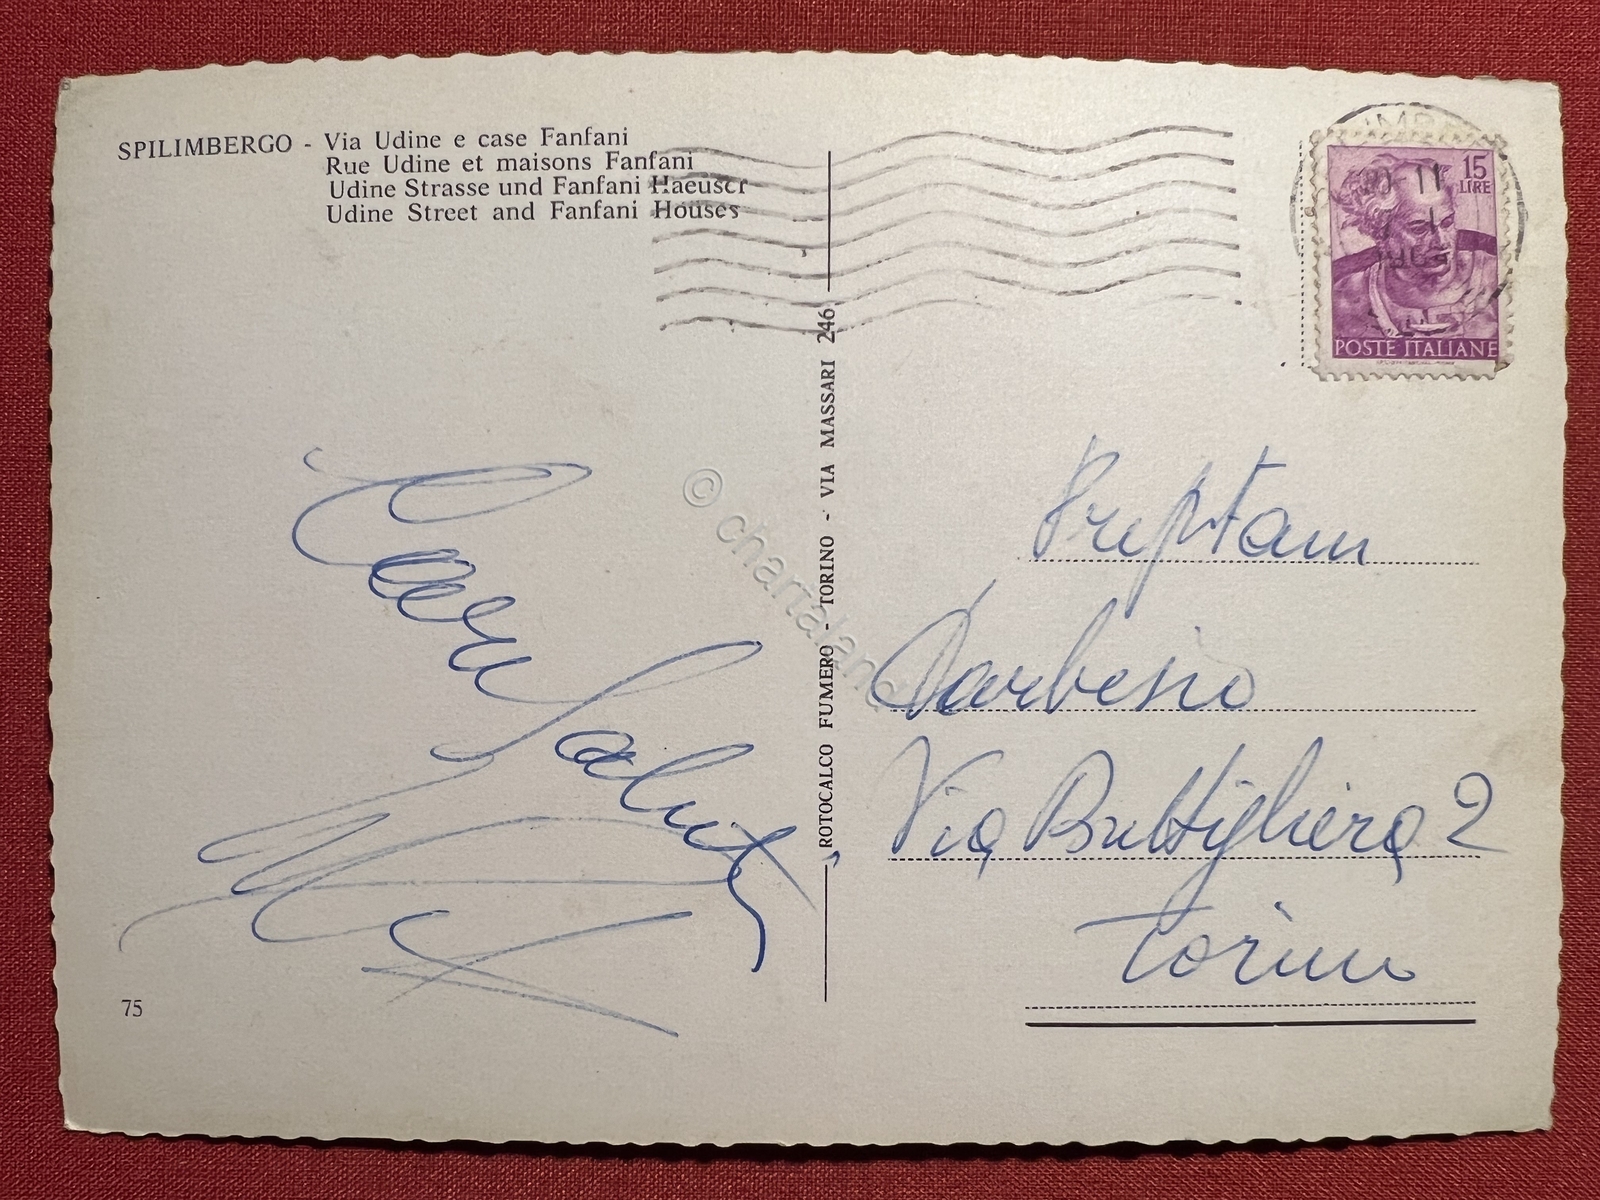 SPILIMBERGO - Via Udine e case Fanfani
Rue Udine et maisons Fanfani
Udine Strasse und Fanfani Haeuser
Udine Street and Fanfani Houses
15
LIRE
POSTE ITALIANE
ROTOCALCO FUMERO - TORINO - VIA MASSARI 246
© chartaland
Cari
Saluti
Barbesio
Via Buttigliera 2
Torino
75